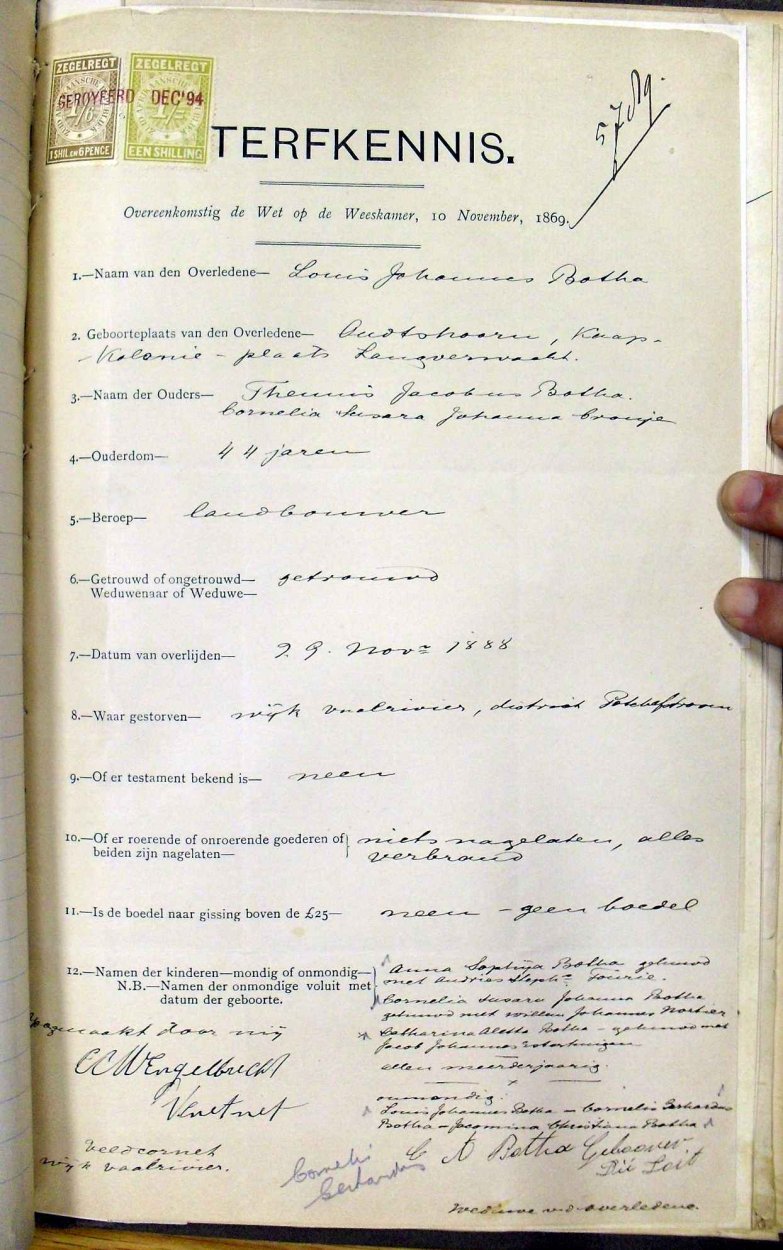 ZEGELREGT ZEGELREGT
GEROYEERD DEC'94
1/6 1/-
1 SHIL. EN 6 PENCE EEN SHILLING
TERFKENNIS.
Overeenkomstig de Wet op de Weeskamer, 10 November, 1869.
1.—Naam van den Overledene— Louis Johannes Botha
2. Geboorteplaats van den Overledene— Oudtshoorn, Kaap-
Kolonie - plaats Langverwacht.
3.—Naam der Ouders— Theunis Jacobus Botha.
Cornelia Susara Johanna Cronje
4.—Ouderdom— 44 jaren
5.—Beroep— landbouwer
6.—Getrouwd of ongetrouwd— getrouwd
Weduwenaar of Weduwe—
7.—Datum van overlijden— Novr 1888
8.—Waar gestorven— wijk vaalrivier, district Potchefstroom
9.—Of er testament bekend is— neen
10.—Of er roerende of onroerende goederen of niets nagelaten, alles
beiden zijn nagelaten— verbrand
11.—Is de boedel naar gissing boven de £25— neen - geen boedel
12.—Namen der kinderen—mondig of onmondig— Anna Sophya Botha gehuwd
N.B.—Namen der onmondige voluit met met Andries Stephs Fourie.
datum der geboorte. Cornelia Susara Johanna Botha
gehuwd met Willem Johannes
Catharina Aletta Botha - gehuwd met
Jacob Johannes Esterhuizen
allen meerderjaarig.
Opgemaakt door mij
CCM Engelbrecht
Venetnet
onmondig:
Louis Johannes Botha - Cornelis Gerhardus
Botha - Jacomina Christiana Botha
Veldcornet
wijk vaalrivier.
Cornelis
Gerhardus
C A Botha Gebooren
Weduwe v.d. overledene.